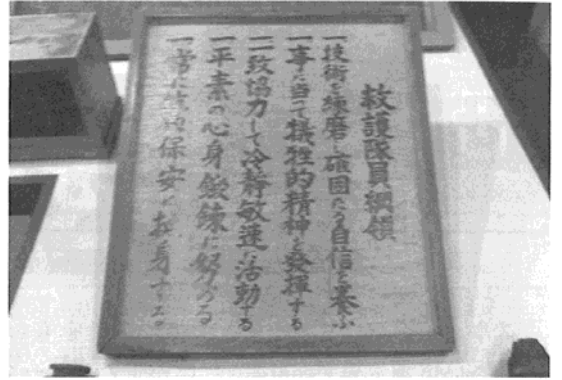 救護隊員綱領
一技術を練磨し確固たる自信を養ふ
一事に当って犠牲的精神を發揮する
一一致協力して冷静敏速に活動する
一平素の心身鍛錬に努める
一常に保安に挺身する。